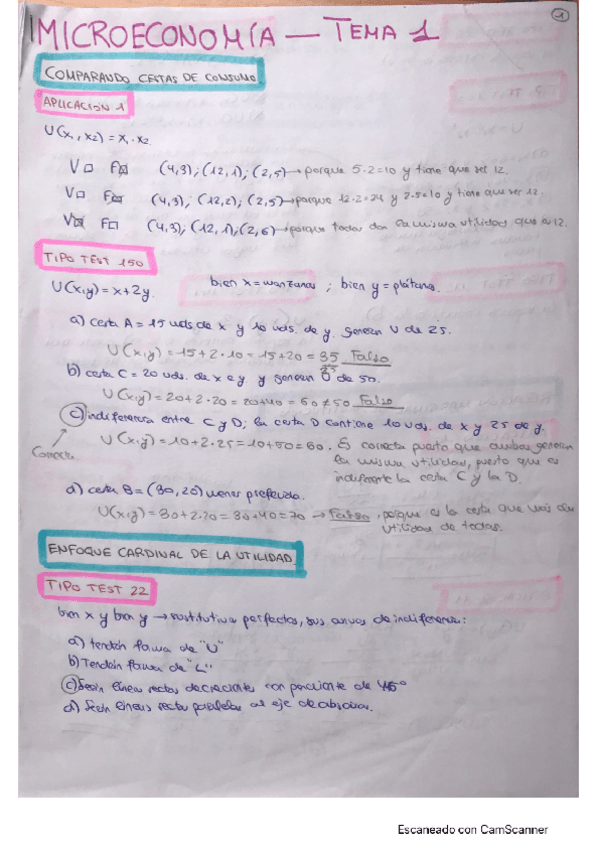 1
MICROECONOMÍA — TEMA 1
COMPARANDO CESTAS DE CONSUMO
APLICACION 1
U(x₁, x₂) = x₁ · x₂
V□ F☒ (4,3); (12,1); (2,5) → porque 5·2=10 y tiene que ser 12.
V□ F☒ (4,3); (12,2); (2,5) → porque 12·2=24 y 2·5=10 y tiene que ser 12.
V☒ F□ (4,3); (12,1); (2,6) → porque todas dan la misma utilidad que es 12.
TIPO TEST 150
U(x,y) = x+2y. bien x = manzanas ; bien y = plátanos.
a) cesta A = 15 uds. de x y 10 uds. de y. generan U de 25.
U(x,y) = 15+2·10 = 15+20 = 35 Falso
b) cesta C = 20 uds. de x e y y generan U de 50.
U(x,y) = 20+2·20 = 20+40 = 60 ≠ 50 Falso
c) indiferencia entre C y D; la cesta D contiene 10 uds. de x y 25 de y.
Correcta U(x,y) = 10+2·25 = 10+50 = 60. Es correcta puesto que ambas generan
la misma utilidad, puesto que es
indiferente la cesta C y la D.
d) cesta B = (30,20) menos preferida.
U(x,y) = 30+2·20 = 30+40 = 70 → Falso, porque es la cesta que más da
utilidad de todas.
ENFOQUE CARDINAL DE LA UTILIDAD
TIPO TEST 22
bien x y bien y → sustitutivos perfectos, sus curvas de indiferencia:
a) tendrán forma de "U"
b) Tendrán forma de "L"
c) Serán líneas rectas decrecientes con pendiente de 45°
d) Serán líneas rectas paralelas al eje de abscisas.
Escaneado con CamScanner